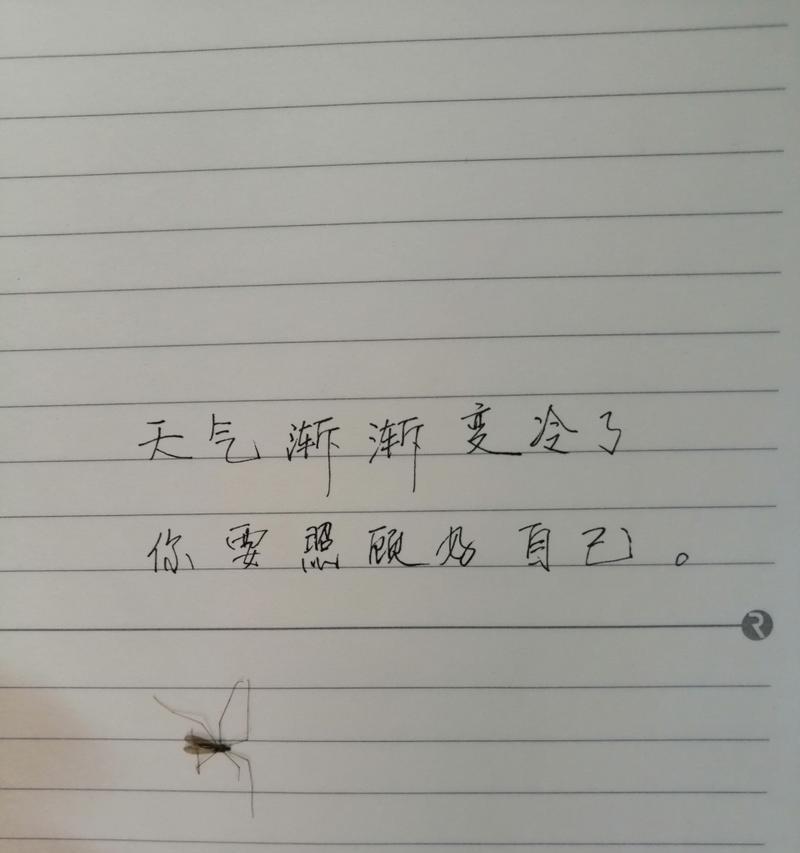 天气渐渐变冷了
你要照顾好自己。
R